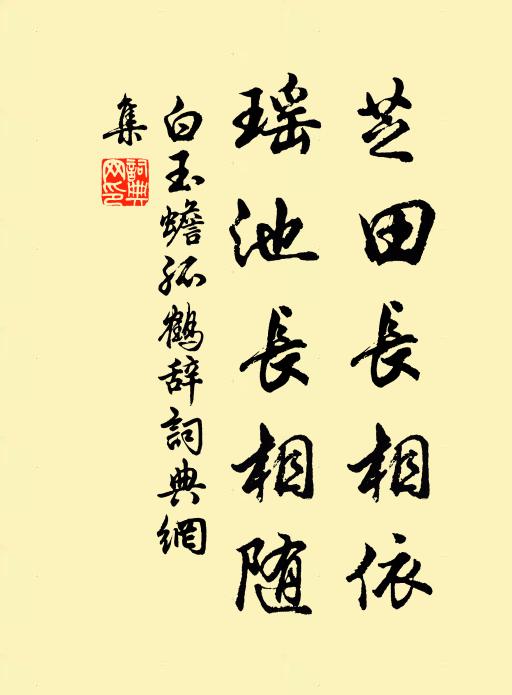 芝田長相依
瑶池長相随
白玉蟾孤鶴辞詞典網
集
詞典網印